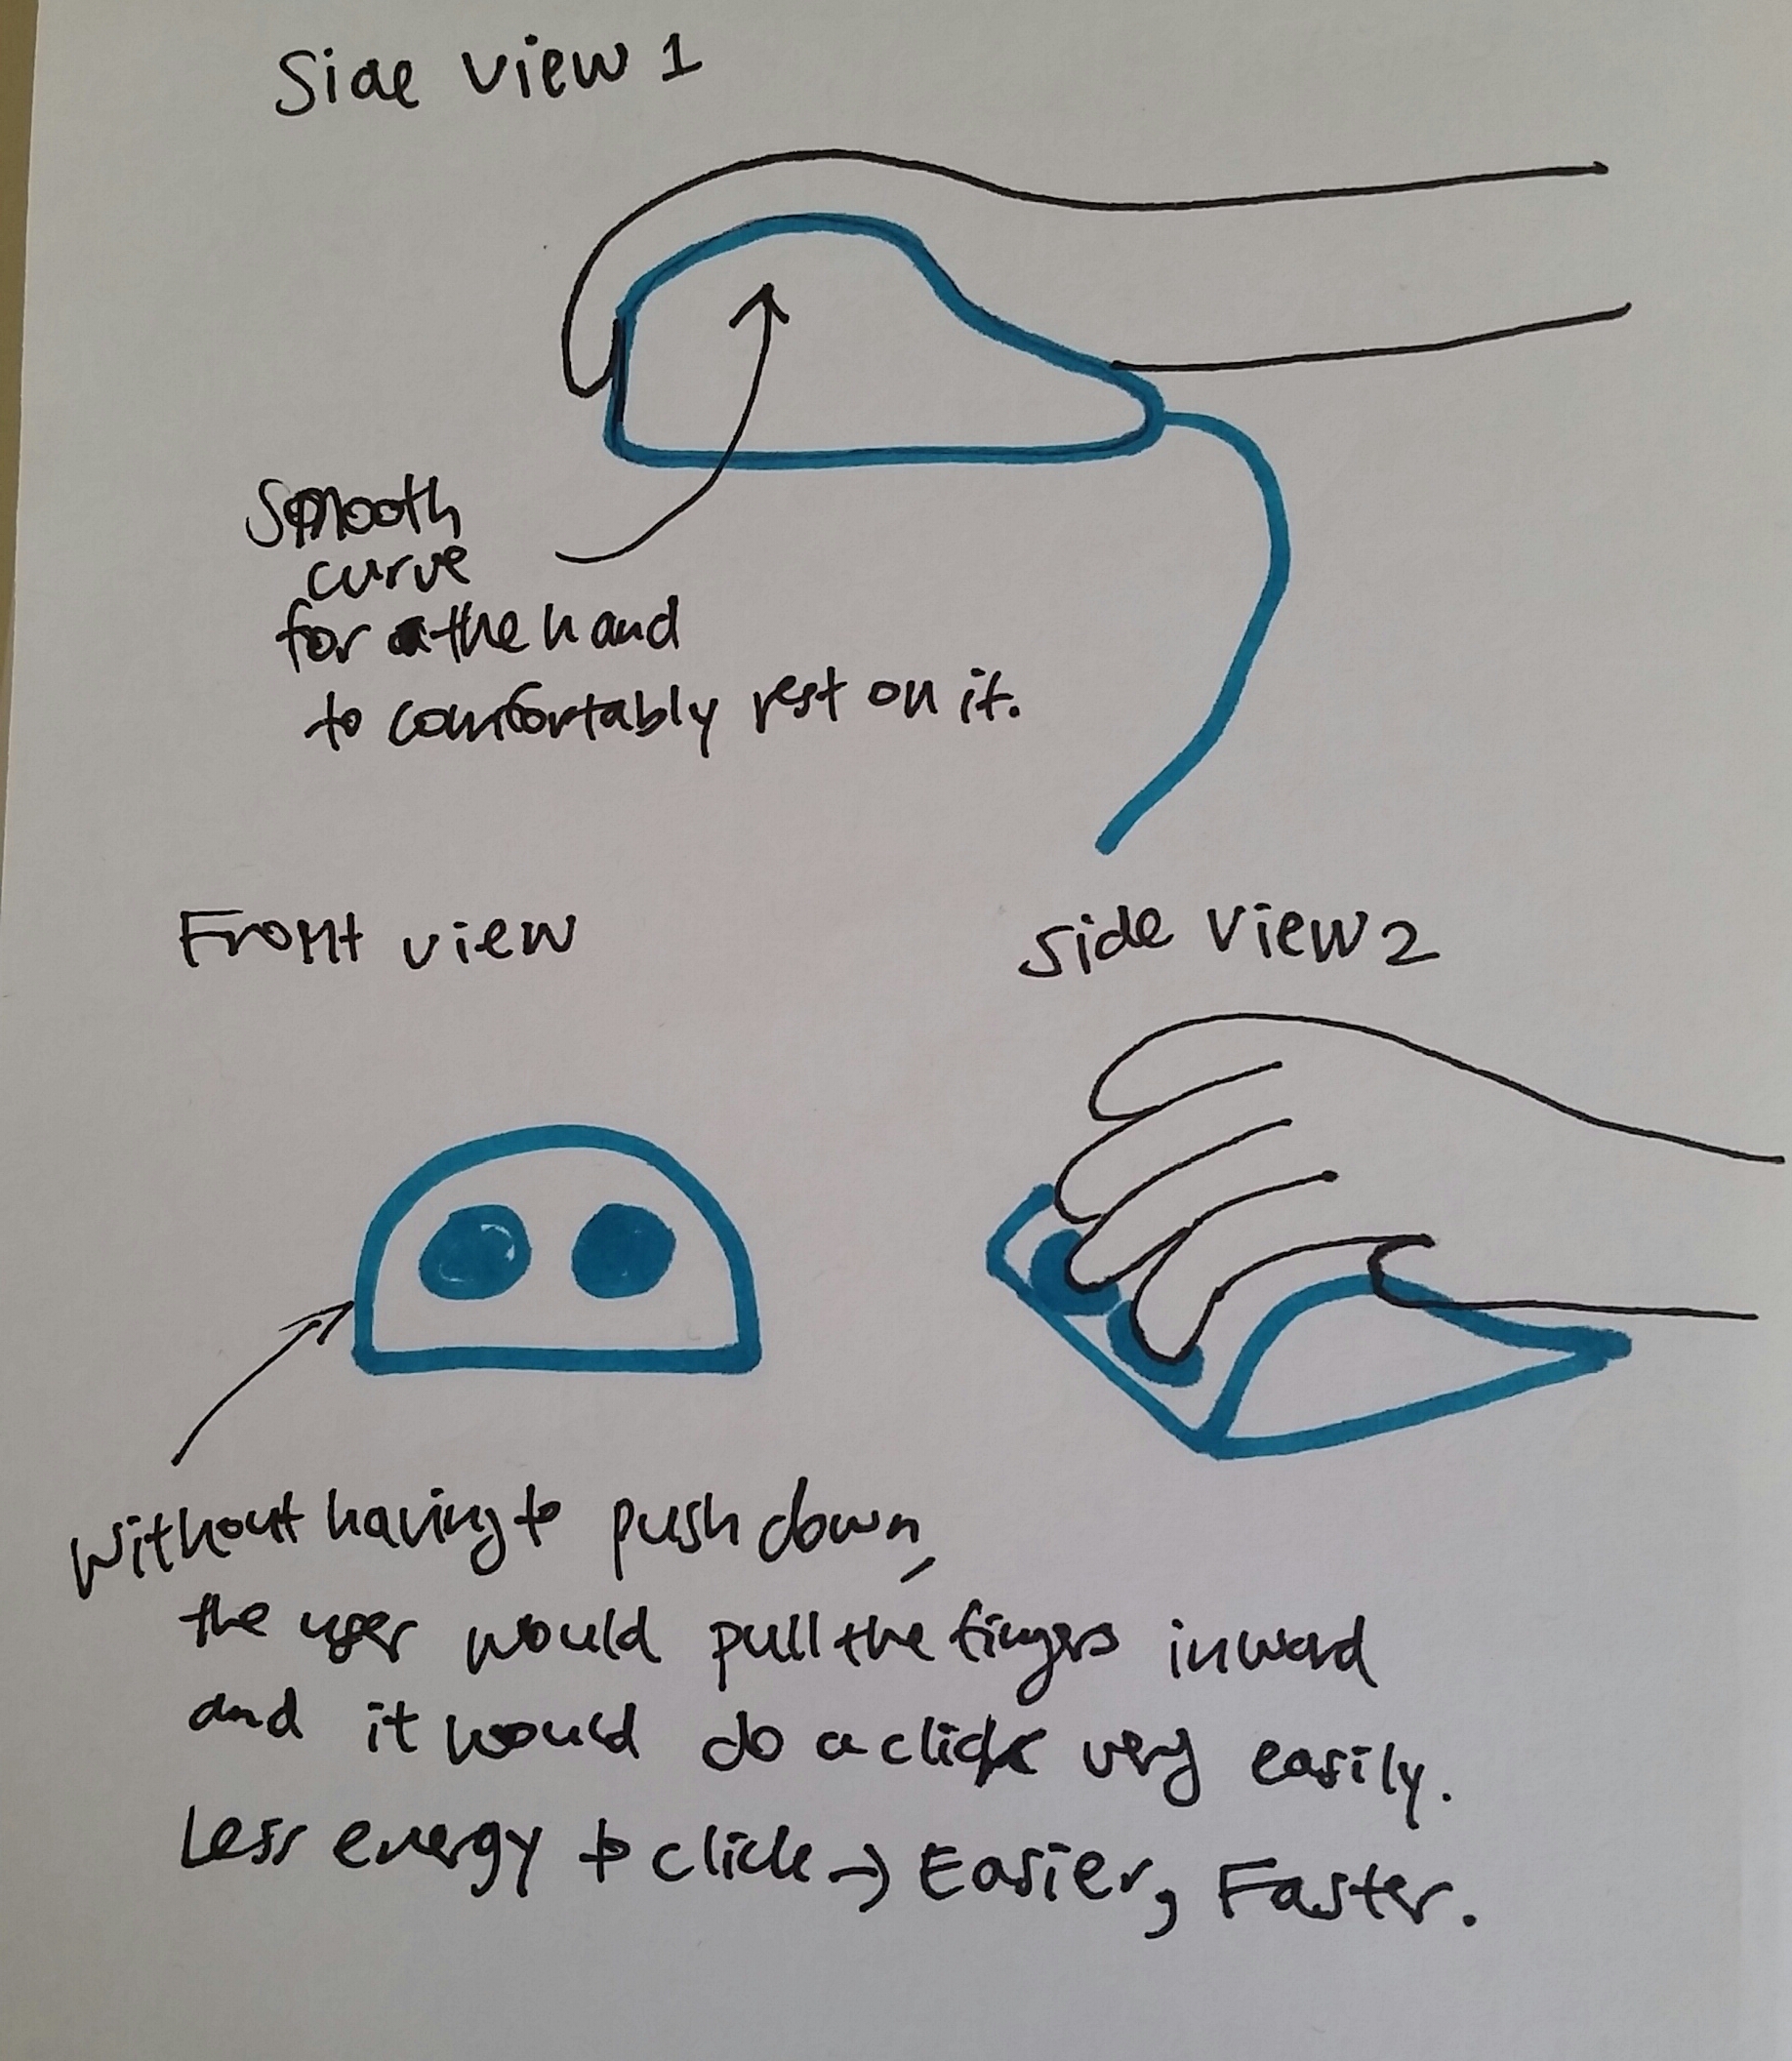 Side view 1
Smooth
curve
for the hand
to comfortably rest on it.
Front view
Side view 2
Without having to push down,
the user would pull the fingers inward
and it would do a click very easily.
Less energy to click → Easier, Faster.